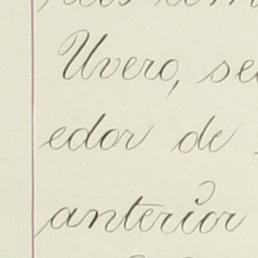 Uvero, se
edor de
anterior